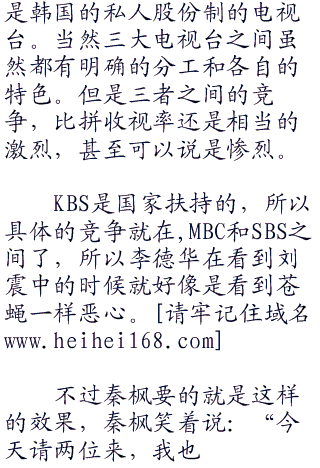 是韩国的私人股份制的电视
台。当然三大电视台之间虽
然都有明确的分工和各自的
特色。但是三者之间的竞
争，比拼收视率还是相当的
激烈，甚至可以说是惨烈。
KBS是国家扶持的，所以
具体的竞争就在,MBC和SBS之
间了，所以李德华在看到刘
震中的时候就好像是看到苍
蝇一样恶心。[请牢记住域名
www.heihei168.com]
不过秦枫要的就是这样
的效果，秦枫笑着说：“今
天请两位来，我也